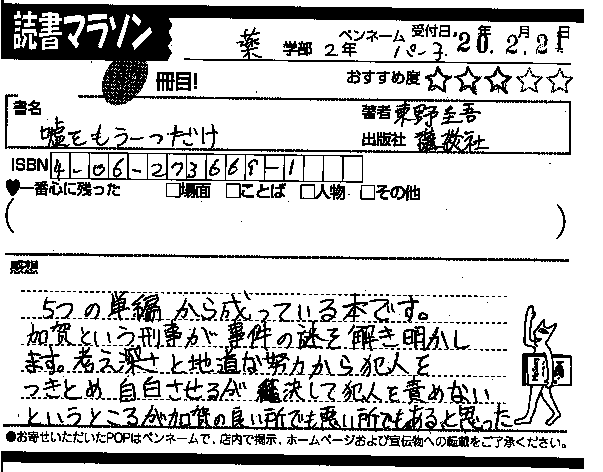 読書マラソン
薬 学部 2年 ペンネーム パー子 受付日 '20.年2.月21日
冊目!
おすすめ度 ☆☆☆☆☆
書名
嘘をもう一つだけ
著者 東野圭吾
出版社 講談社
ISBN 4-06-273669-1
♥一番心に残った □場面 □ことば □人物 □その他
( )
感想
5つの単編から成っている本です。
加賀という刑事が事件の謎を解き明かし
ます。考え深さと地道な努力から犯人を
つきとめ自白させるが決して犯人を責めない
というところが加賀の良い所でも悪い所でもあると思った
●お寄せいただいたPOPはペンネームで、店内で掲示、ホームページおよび宣伝物への転載をご了承ください。